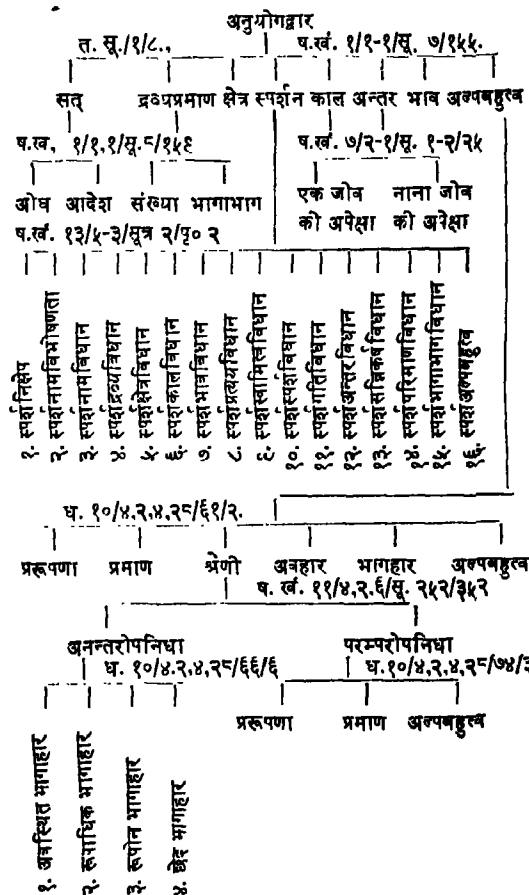 अनुयोगद्वार
त. सू./१/८., ष.खं. १/१-१/सू. ७/१५५.
सत् द्रव्यप्रमाण क्षेत्र स्पर्शन काल अन्तर भाव अल्पबहुत्व
ष.ख. १/१,१/सू.८/१५९ ष.खं. ७/२-१/सू. १-२/२५
ओघ आदेश संख्या भागाभाग एक जोव नाना जोव
की अपेक्षा की अपेक्षा
ष.खं. १३/५-३/सूत्र २/पृ० २
१. स्पर्शनिक्षेप
२. स्पर्शनामविभोषणता
३. स्पर्शनामविधान
४. स्पर्शद्रव्यविधान
५. स्पर्शक्षेत्रविधान
६. स्पर्शकालविधान
७. स्पर्शभावविधान
८. स्पर्शप्रत्ययविधान
९. स्पर्शस्वामित्वविधान
१०. स्पर्शस्पर्शविधान
११. स्पर्शगतिविधान
१२. स्पर्शअन्तरविधान
१३. स्पर्शसन्निकर्षविधान
१४. स्पर्शपरिमाणविधान
१५. स्पर्शभागाभागविधान
१६. स्पर्शअल्पबहुत्व
ध. १०/४,२,४,२८/६१/२.
प्ररूपणा प्रमाण श्रेणी अवहार भागहार अल्पबहुत्व
ष. खं. ११/४,२,६/सू. २५२/३५२
अनन्तरोपनिधा परम्परोपनिधा
ध. १०/४.२,४,२८/६६/६ ध.१०/४,२,४,२८/७४/३
प्ररूपणा प्रमाण अल्पबहुत्व
१. अवस्थित भागाहार
२. रूपाधिक भागाहार
३. रूपोन भागाहार
४. छेद भागाहार